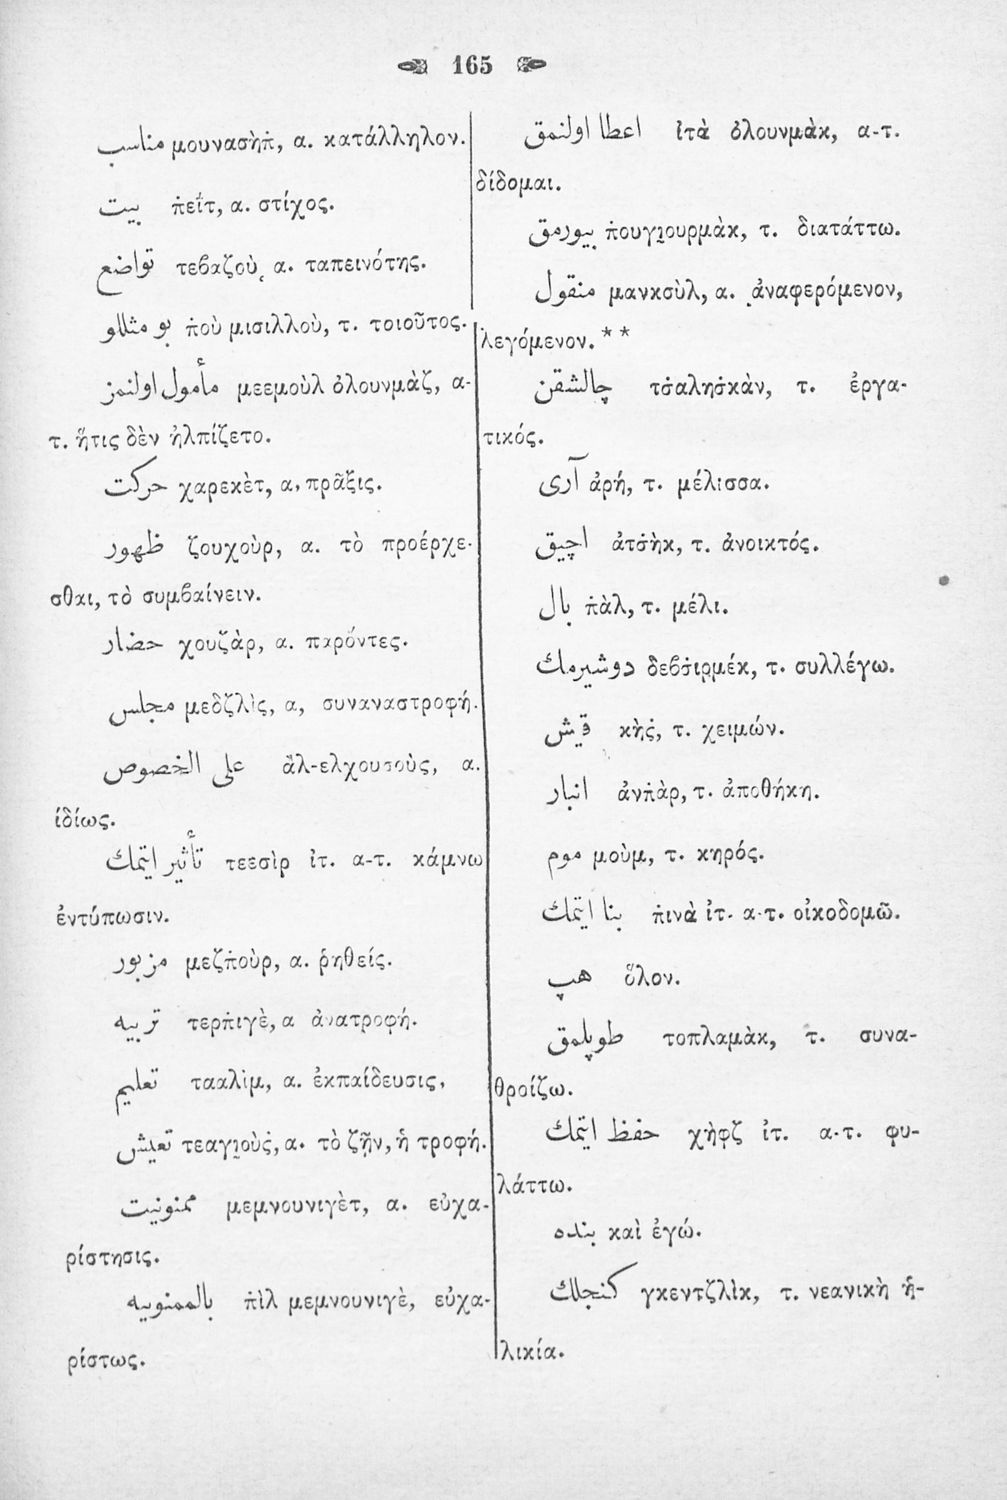 165
مناسب μουνασὴπ̇, α. κατάλληλον.
بيت π̇εΐτ, α. στίχος.
تواضع τεβαζοὺ, α. ταπεινότης.
بو مثللو π̇οὺ μισιλλοὺ, τ. τοιοῦτος.
مأمول اولنمز μεεμοὺλ ὀλουνμὰζ, α-
τ. ἥτις δὲν ἠλπίζετο.
حركت χαρεκὲτ, α, πρᾶξις.
ظهور ζουχοὺρ, α. τὸ προέρχε-
σθαι, τὸ συμβαίνειν.
حضار χουζὰρ, α. παρόντες.
مجلس μεδζλὶς, α, συναναστροφή.
على الخصوص ἂλ-ελχουσοὺς, α.
ἰδίως.
تأثير ايتمك τεεσὶρ ἰτ. α-τ. κάμνω
ἐντύπωσιν.
مزبور μεζπ̇οὺρ, α. ῥηθείς.
تربيه τερπ̇ιγὲ, α ἀνατροφή.
تعليم τααλὶμ, α. ἐκπαίδευσις,
تعيش τεαγιοὺς̇, α. τὸ ζῇν, ἡ τροφή.
ممنونيت μεμνουνιγὲτ, α. εὐχα-
ρίστησις.
بالممنونيه π̇ὶλ μεμνουνιγὲ, εὐχα-
ρίστως.
اعطا اولنمق ἰτὰ ὀλουνμὰκ, α-τ.
δίδομαι.
بيورمق π̇ουγιουρμὰκ, τ. διατάττω.
منقول μανκσὺλ, α. ἀναφερόμενον,
λεγόμενον. * *
چالشقن τσ̇αλησ̇κὰν, τ. ἐργα-
τικός.
آرى ἀρή, τ. μέλισσα.
اچيق ἀτσ̇ὴκ, τ. ἀνοικτός.
بال π̇ὰλ, τ. μέλι.
دوشيرمك δεβσ̇ιρμέκ, τ. συλλέγω.
قيش κὴς̇, τ. χειμών.
انبار ἀνπ̇ὰρ, τ. ἀποθήκη.
موم μοὺμ, τ. κηρός.
بنا ايتمك π̇ινὰ ἰτ. α-τ. οἰκοδομῶ.
هپ ὅλον.
طوپلمق τοπλαμὰκ, τ. συνα-
θροίζω.
حفظ ايتمك χὴφζ ἰτ. α-τ. φυ-
λάττω.
بنده καὶ ἐγώ.
كنجلك γκεντζλὶκ, τ. νεανικὴ ἡ-
λικία.